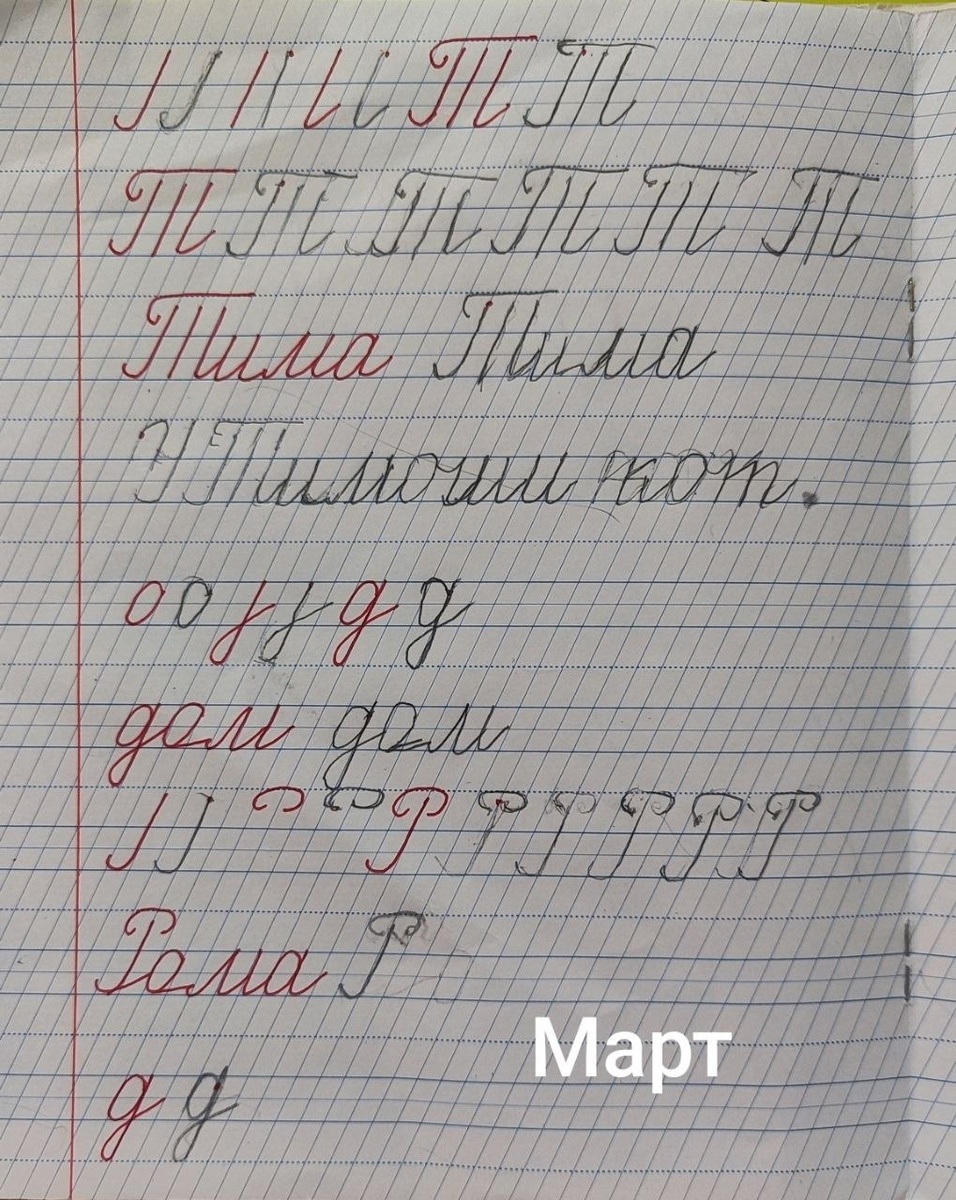 Т Т
Т Т Т Т Т Т
Тима Тима
У Тимоши кот.
о о д д
дом дом
Р Р Р Р Р Р
Рома Р
Март
д д